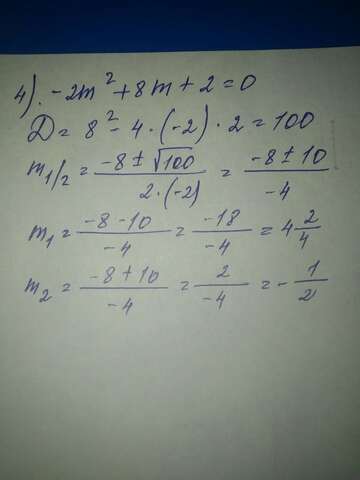 4). -2m² + 8m + 2 = 0
D = 8² - 4 · (-2) · 2 = 100
m₁/₂ = (-8 ± √100)/(2 · (-2)) = (-8 ± 10)/(-4)
m₁ = (-8 - 10)/(-4) = (-18)/(-4) = 4 2/4
m₂ = (-8 + 10)/(-4) = 2/(-4) = - 1/2